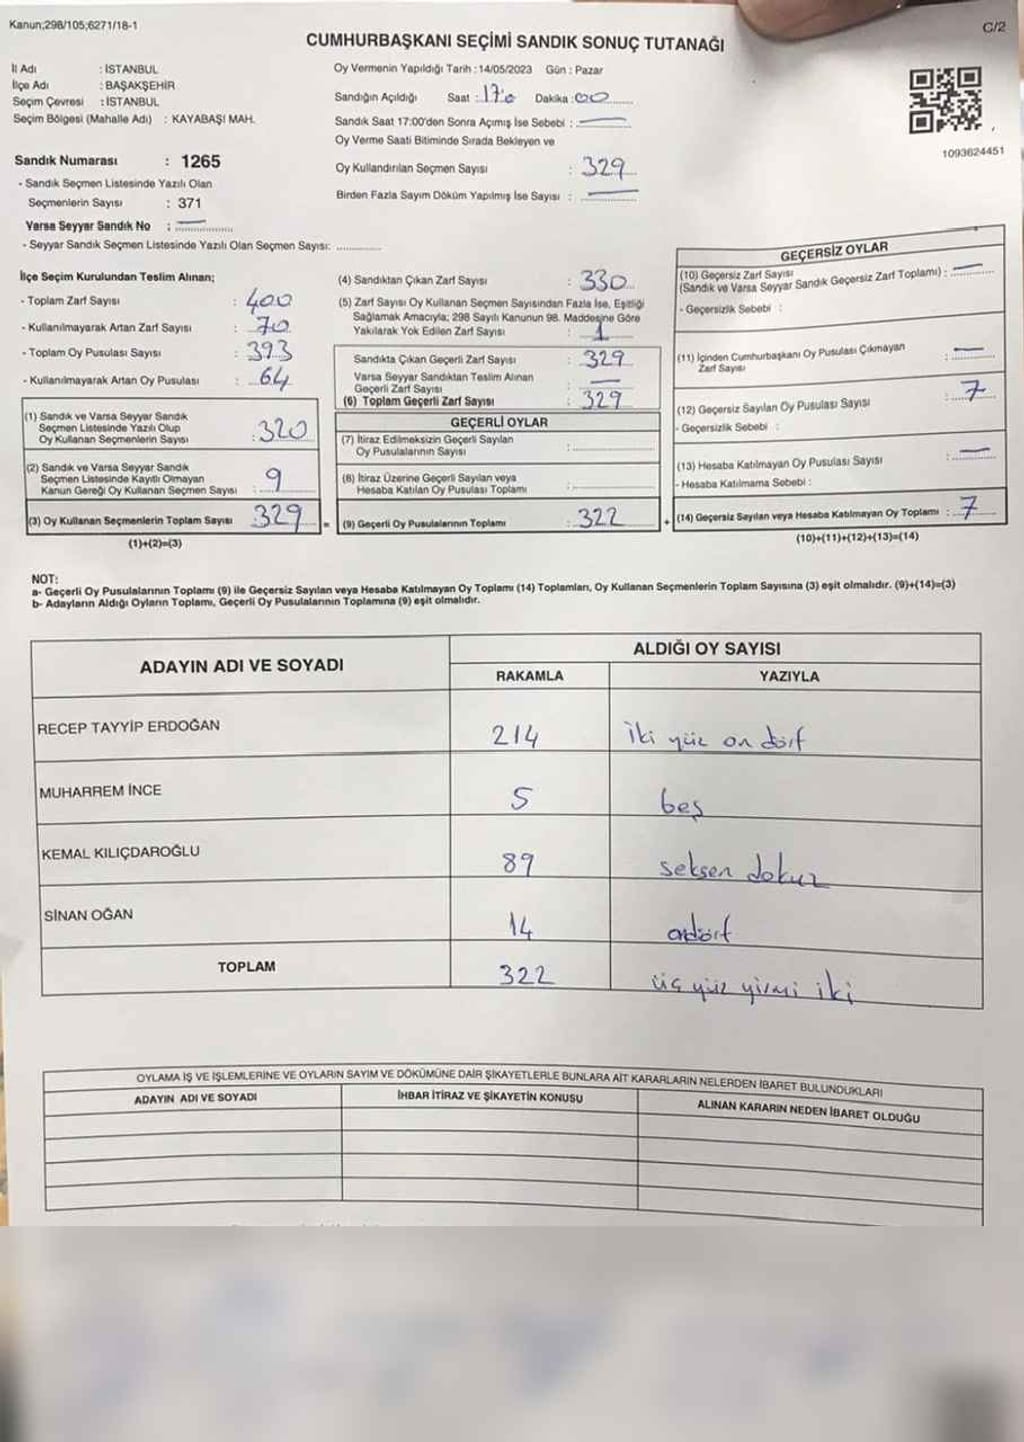 Kanun;298/105;6271/18-1
C/2
CUMHURBAŞKANI SEÇİMİ SANDIK SONUÇ TUTANAĞI
İl Adı : İSTANBUL
İlçe Adı : BAŞAKŞEHİR
Seçim Çevresi : İSTANBUL
Seçim Bölgesi (Mahalle Adı) : KAYABAŞI MAH.
Sandık Numarası : 1265
- Sandık Seçmen Listesinde Yazılı Olan
Seçmenlerin Sayısı : 371
Varsa Seyyar Sandık No :
- Seyyar Sandık Seçmen Listesinde Yazılı Olan Seçmen Sayısı:
Oy Vermenin Yapıldığı Tarih : 14/05/2023 Gün : Pazar
Sandığın Açıldığı Saat : 17:0 Dakika : 00
Sandık Saat 17:00'den Sonra Açımış İse Sebebi :
Oy Verme Saati Bitiminde Sırada Bekleyen ve
Oy Kullandırılan Seçmen Sayısı : 329
Birden Fazla Sayım Döküm Yapılmış İse Sayısı :
1093624451
İlçe Seçim Kurulundan Teslim Alınan;
- Toplam Zarf Sayısı : 400
- Kullanılmayarak Artan Zarf Sayısı : 70
- Toplam Oy Pusulası Sayısı : 393
- Kullanılmayarak Artan Oy Pusulası : 64
(1) Sandık ve Varsa Seyyar Sandık
Seçmen Listesinde Yazılı Olup
Oy Kullanan Seçmenlerin Sayısı : 320
(2) Sandık ve Varsa Seyyar Sandık
Seçmen Listesinde Kayıtlı Olmayan
Kanun Gereği Oy Kullanan Seçmen Sayısı : 9
(3) Oy Kullanan Seçmenlerin Toplam Sayısı 329 =
(1)+(2)=(3)
(4) Sandıktan Çıkan Zarf Sayısı : 330
(5) Zarf Sayısı Oy Kullanan Seçmen Sayısından Fazla İse, Eşitliği
Sağlamak Amacıyla; 298 Sayılı Kanunun 98. Maddesine Göre
Yakılarak Yok Edilen Zarf Sayısı : 1
Sandıkta Çıkan Geçerli Zarf Sayısı : 329
Varsa Seyyar Sandıktan Teslim Alınan
Geçerli Zarf Sayısı :
(6) Toplam Geçerli Zarf Sayısı : 329
GEÇERLİ OYLAR
(7) İtiraz Edilmeksizin Geçerli Sayılan
Oy Pusulalarının Sayısı :
(8) İtiraz Üzerine Geçerli Sayılan veya
Hesaba Katılan Oy Pusulası Toplamı :
(9) Geçerli Oy Pusulalarının Toplamı : 322 +
GEÇERSİZ OYLAR
(10) Geçersiz Zarf Sayısı
(Sandık ve Varsa Seyyar Sandık Geçersiz Zarf Toplamı) :
- Geçersizlik Sebebi :
(11) İçinden Cumhurbaşkanı Oy Pusulası Çıkmayan
Zarf Sayısı :
(12) Geçersiz Sayılan Oy Pusulası Sayısı : 7
- Geçersizlik Sebebi :
(13) Hesaba Katılmayan Oy Pusulası Sayısı :
- Hesaba Katılmama Sebebi :
(14) Geçersiz Sayılan veya Hesaba Katılmayan Oy Toplamı : 7
(10)+(11)+(12)+(13)=(14)
NOT:
a- Geçerli Oy Pusulalarının Toplamı (9) ile Geçersiz Sayılan veya Hesaba Katılmayan Oy Toplamı (14) Toplamları, Oy Kullanan Seçmenlerin Toplam Sayısına (3) eşit olmalıdır. (9)+(14)=(3)
b- Adayların Aldığı Oyların Toplamı, Geçerli Oy Pusulalarının Toplamına (9) eşit olmalıdır.
ADAYIN ADI VE SOYADI ALDIĞI OY SAYISI
RAKAMLA YAZIYLA
RECEP TAYYİP ERDOĞAN 214 iki yüz on dört
MUHARREM İNCE 5 beş
KEMAL KILIÇDAROĞLU 89 seksen dokuz
SİNAN OĞAN 14 ondört
TOPLAM 322 üç yüz yirmi iki
OYLAMA İŞ VE İŞLEMLERİNE VE OYLARIN SAYIM VE DÖKÜMÜNE DAİR ŞİKAYETLERLE BUNLARA AİT KARARLARIN NELERDEN İBARET BULUNDUKLARI
ADAYIN ADI VE SOYADI İHBAR İTİRAZ VE ŞİKAYETİN KONUSU ALINAN KARARIN NEDEN İBARET OLDUĞU